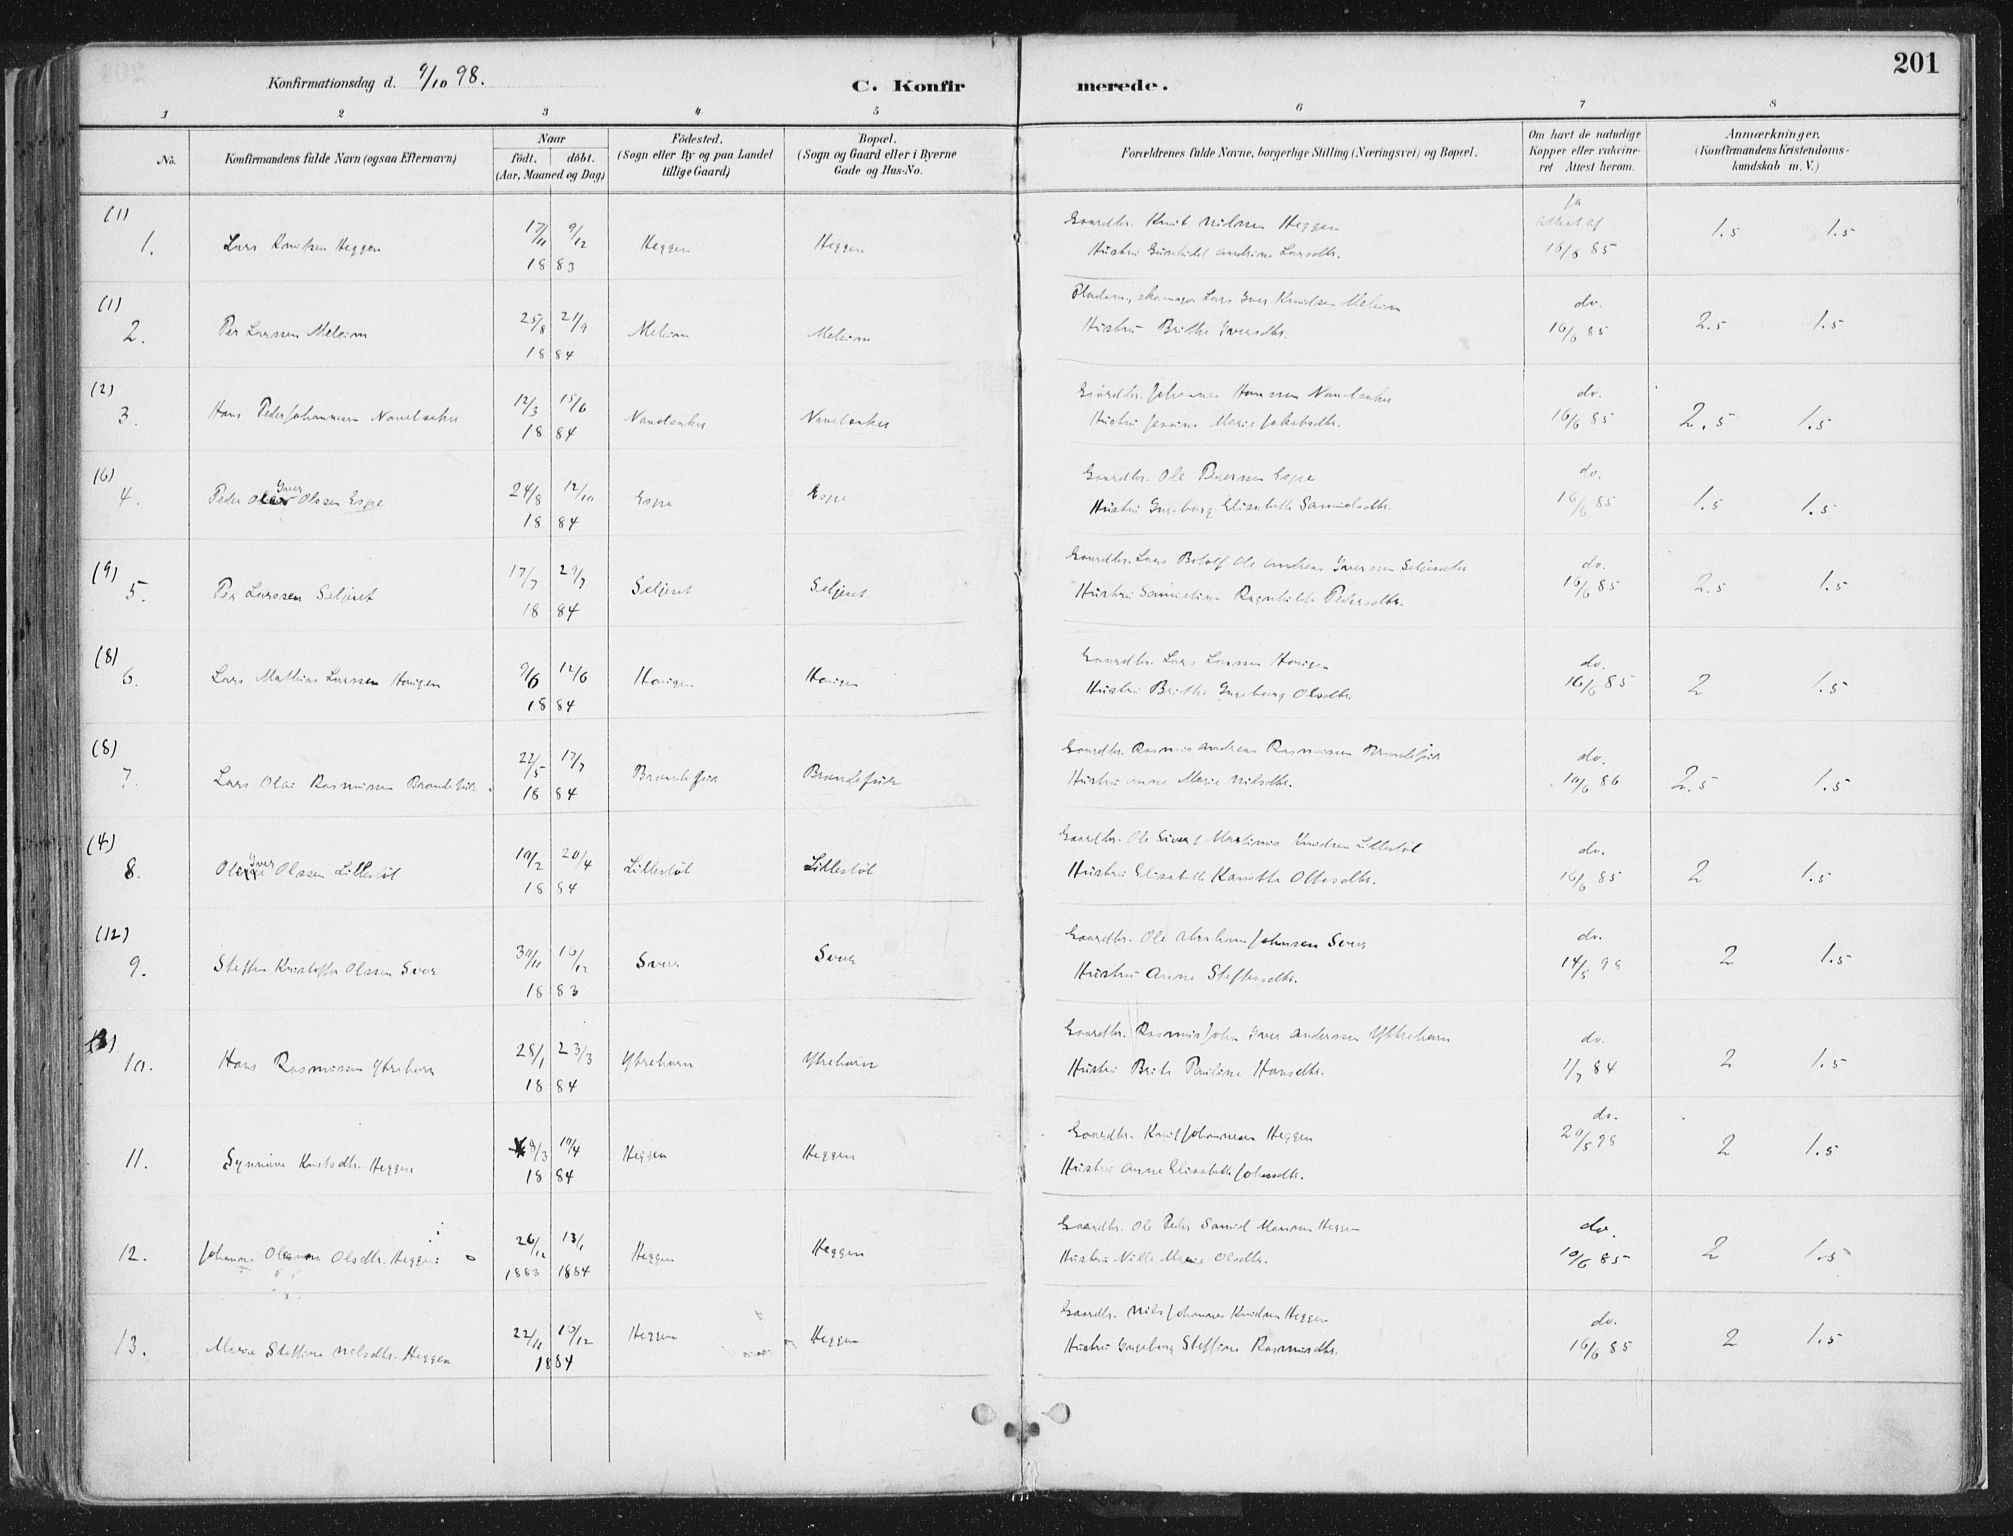 201
Konfirmationsdag d. 9/10 98.
C. Konfirmerede.
1 2 3 4 5 6 7 8
No.
Konfirmandens fulde Navn (ogsaa Efternavn)
Naar
födt. döbt.
(Aar, Maaned og Dag)
Födested.
(Sogn eller By og paa Landet
tillige Gaard)
Bopæl.
(Sogn og Gaard eller i Byerne
Gade og Hus-No.
Forældrenes fulde Navne, borgerlige Stilling (Næringsvei) og Bopæl.
Om havt de naturlige
Kopper eller vakcine-
ret. Attest herom.
Anmærkninger.
(Konfirmandens Kristendoms-
kundskab m. V.)
(1)
1. Lars Knutsen Heggen 17/11 9/12 1883 Heggen Heggen
Gaardbr. Knut Nilsen Heggen
Hustru Gunhild Andrine Larsdtr.
ja
Attest af
16/6 85 1.5 1.5
(1)
2. Per Larssen Meleim 25/8 21/9 1884 Meleim Meleim
Lars Iver Knudsen Meleim
Hustru Brithe Iversdtr.
do.
16/6 85 2.5 1.5
(2)
3. Hans Peder Johannessen Navelsaker 12/3 15/6 1884 Navelsaker Navelsaker
Gaardbr. Johannes Hanssen Navelsaker
Hustru Jensine Marie Jakobsdtr.
do.
16/6 85 2.5 1.5
(6)
4. Peder Iver Olssen Espe 24/8 12/10 1884 Espe Espe
Gaardbr. Ole Pedersen Espe
Hustru Ingeborg Elisabeth Samuelsdtr.
do.
16/6 85 1.5 1.5
(9)
5. Per Larssen Seljeset 17/7 29/7 1884 Seljeset Seljeset
Gaardbr. Lars Botolf Ole Andreas Iverssen Seljeseth
Hustru Samueline Ragnhilde Pedersdtr.
do.
16/6 85 2.5 1.5
(8)
6. Lars Mathias Larssen Haugen 9/6 12/6 1884 Haugen Haugen
Gaardbr. Lars Larssen Haugen
Hustru Brithe Ingeborg Olsdtr.
do.
16/6 85 2 1.5
(8)
7. Lars Olai Rasmussen 22/5 17/7 1884
Gaardbr. Rasmus Andreas Rasmussen
Hustru Anne Marie Nilsdtr.
do.
10/6 86 2.5 1.5
(4)
8. Ole Iver Olssen Lillestøl 10/2 20/4 1884 Lillestøl Lillestøl
Gaardbr. Ole Sivert Martinus Knudsen Lillestøl
Hustru Elisabeth Kanutte Ottosdtr.
do.
16/6 85 2 1.5
(12)
9. Steffen Kristoffer Olssen Svor 30/11 16/12 1883 Svor Svor
Gaardbr. Ole Abraham Johnsen Svor
Hustru Anne Steffensdtr.
do.
14/5 98 2 1.5
10. Hans Rasmussen Ytrehorn 28/1 23/3 1884 Ytrehorn Ytrehorn
Gaardbr. Rasmus John Iver Anderssen Ytrehorn
Hustru Brite Pauline Hansdtr.
do.
1/7 84 2 1.5
11. Synnøve Knutsdtr. Heggen 9/3 10/4 1884 Heggen Heggen
Gaardbr. Knut Johannessen Heggen
Hustru Anne Elisabeth Johnsdtr.
do.
20/5 98 2 1.5
12. Johanne Olsdtr. Heggen 26/12 13/1 1883 1884 Heggen Heggen
Gaardbr. Ole Peder Samuel Monsen Heggen
Hustru Nille Marie Olsdtr.
do.
10/6 85 2 1.5
13. Marie Steffine Nilsdtr. Heggen 22/11 16/12 1884 Heggen Heggen
Gaardbr. Nils Johannes Knudsen Heggen
Hustru Ingeborg Steffine Rasmusdtr.
do.
16/6 85 2 1.5